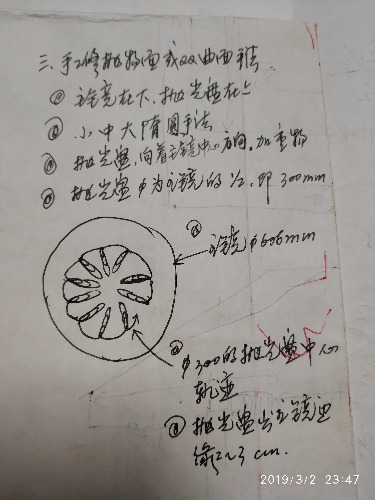 三、手修抛物面或双曲面手法
① 主镜在下、抛光盘在上
② 小中大隋圆手法
③ 抛光盘,向着主镜中心方向,加重物
④ 抛光盘φ为主镜的1/2,即300mm
主镜φ606mm
φ300的抛光盘中心
轨迹
抛光盘出主镜边
缘2~3cm.
2019/3/2 23:47